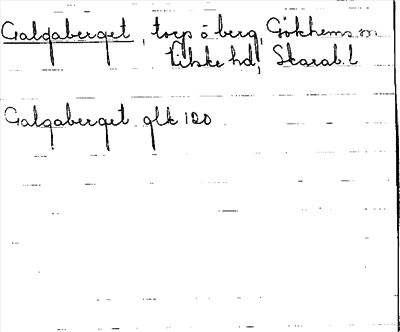 Galgaberget, torp å berg, Gökhems sn
Vilske hd, Skarab. l
Galgaberget glk 120